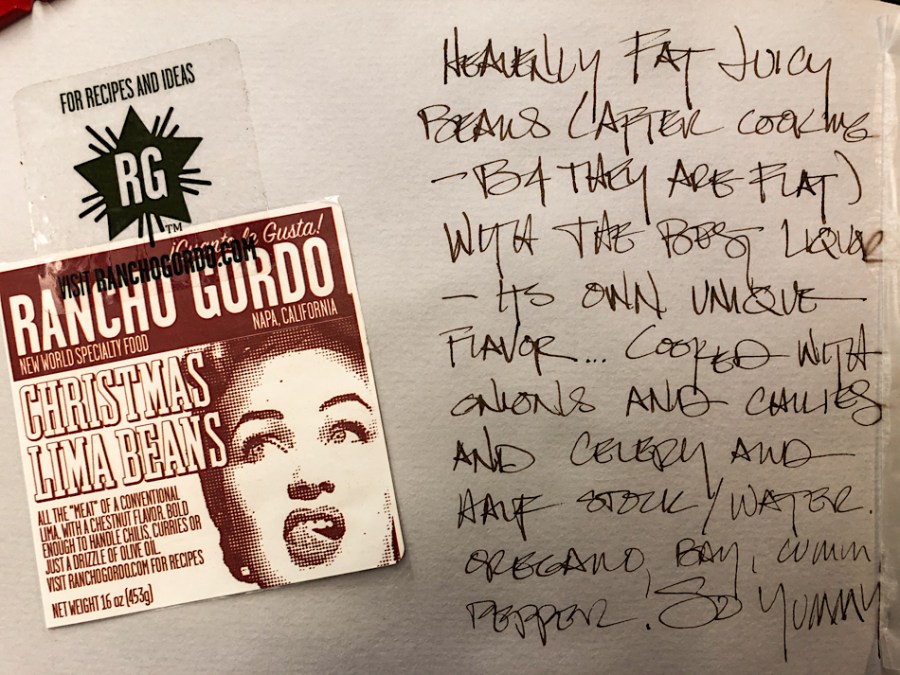 FOR RECIPES AND IDEAS
RG
TM
VISIT RANCHOGORDO.COM
¡Cuanto le Gusta!
RANCHO GORDO
NAPA, CALIFORNIA
NEW WORLD SPECIALTY FOOD
CHRISTMAS
LIMA BEANS
ALL THE "MEAT" OF A CONVENTIONAL
LIMA, WITH A CHESTNUT FLAVOR. BOLD
ENOUGH TO HANDLE CHILIS, CURRIES OR
JUST A DRIZZLE OF OLIVE OIL.
VISIT RANCHOGORDO.COM FOR RECIPES
NET WEIGHT 16 oz (453g)
HEAVENLY FAT JUICY
BEANS (AFTER COOKING
- B4 THEY ARE FLAT)
WITH THE BEST LIQUOR
- ITS OWN UNIQUE
FLAVOR... COOKED WITH
ONIONS AND CHILIES
AND CELERY AND
HALF STOCK/WATER.
OREGANO, BAY, CUMIN
PEPPER. SO YUMMY